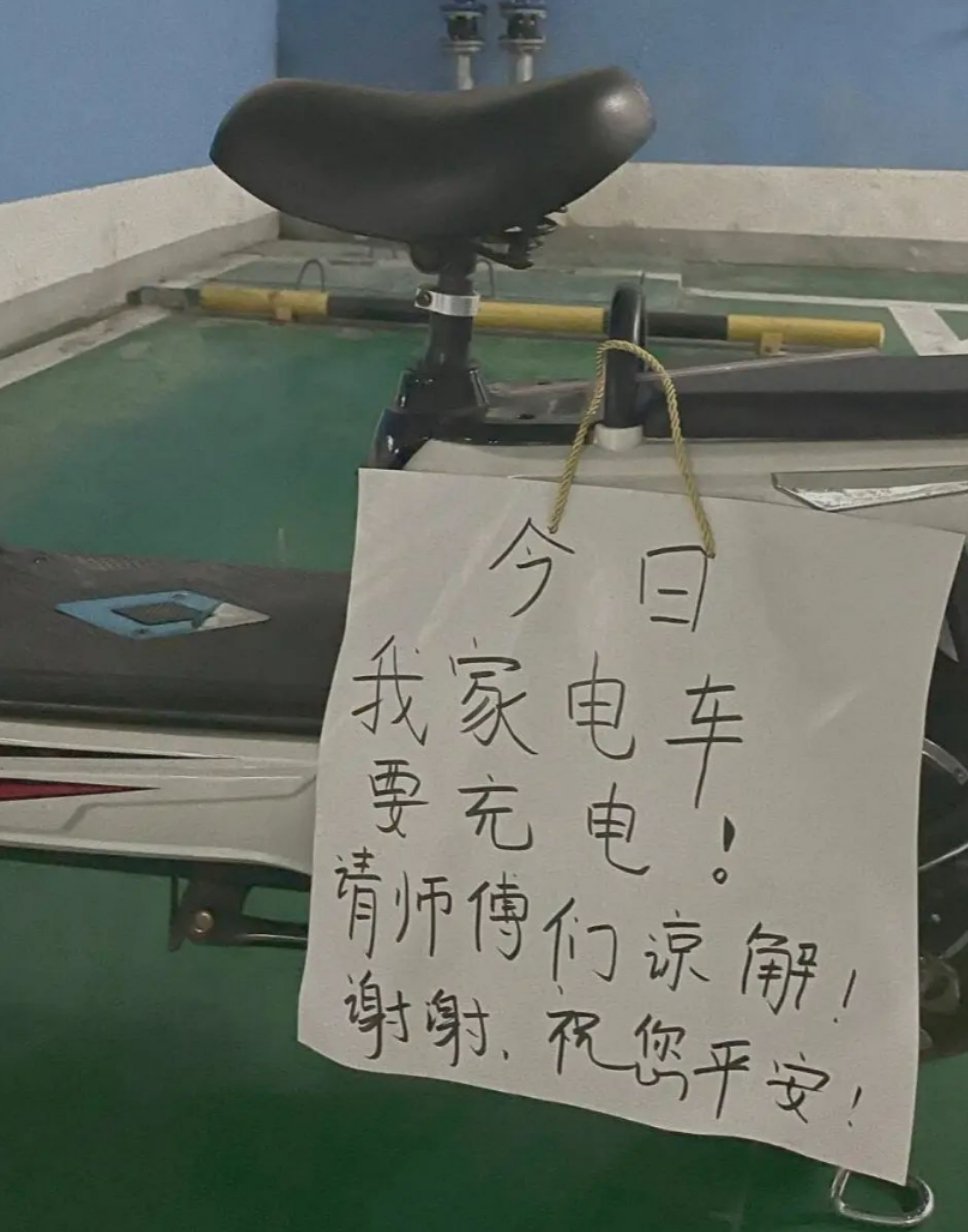 今日
我家电车
要充电!
请师傅们谅解!
谢谢、祝您平安!